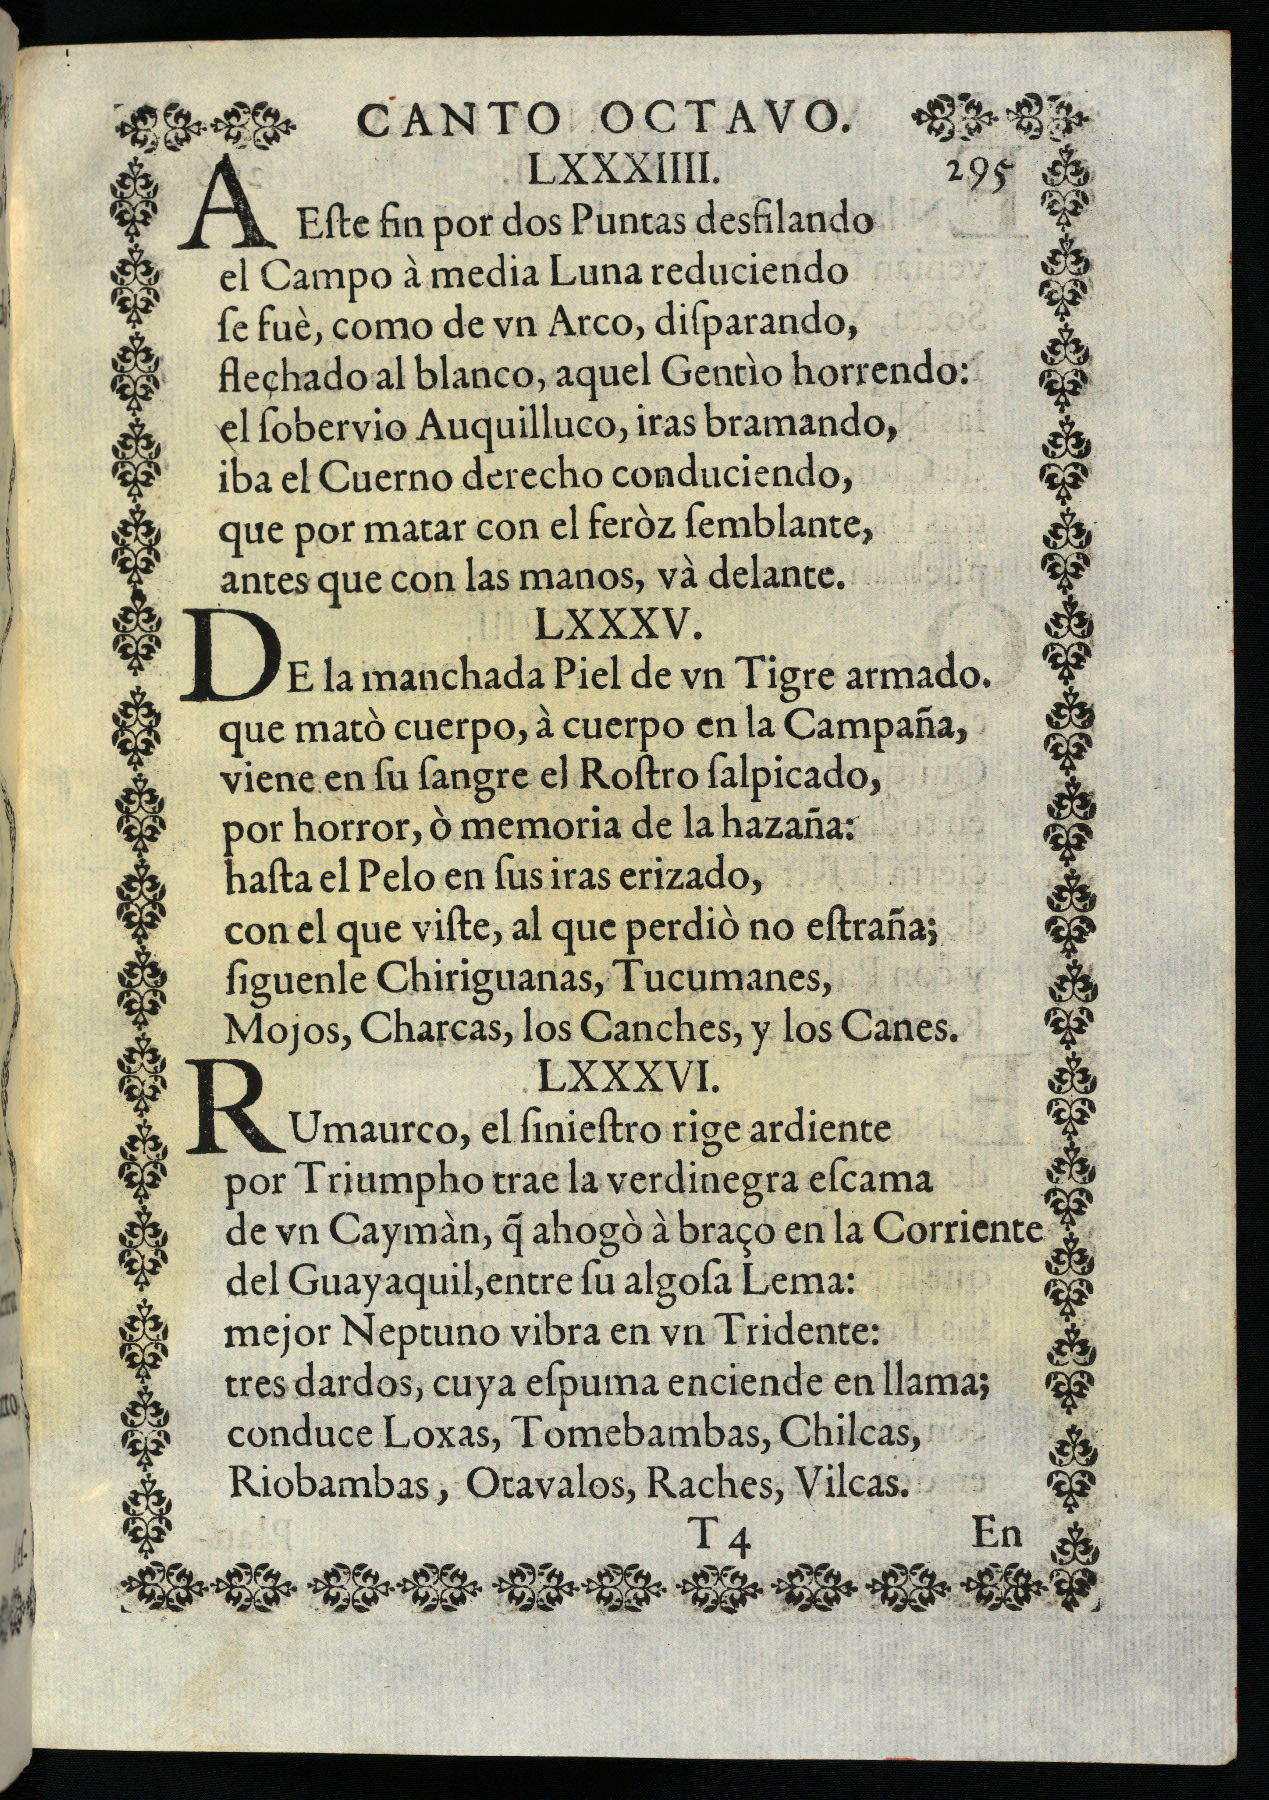 CANTO OCTAVO.
LXXXIIII. 295
A Eſte fin por dos Puntas desfilando
el Campo à media Luna reduciendo
ſe fuè, como de vn Arco, diſparando,
flechado al blanco, aquel Gentìo horrendo:
el ſobervio Auquilluco, iras bramando,
ìba el Cuerno derecho conduciendo,
que por matar con el feròz ſemblante,
antes que con las manos, và delante.
LXXXV.
DE la manchada Piel de vn Tigre armado.
que matò cuerpo, à cuerpo en la Campaña,
viene en ſu ſangre el Roſtro ſalpicado,
por horror, ò memoria de la hazaña:
haſta el Pelo en ſus iras erizado,
con el que viſte, al que perdiò no eſtraña;
ſiguenle Chiriguanas, Tucumanes,
Mojos, Charcas, los Canches, y los Canes.
LXXXVI.
RUmaurco, el ſinieſtro rige ardiente
por Triumpho trae la verdinegra eſcama
de vn Caymàn, q̃ ahogò à braço en la Corriente
del Guayaquil,entre ſu algoſa Lema:
mejor Neptuno vibra en vn Tridente:
tres dardos, cuya eſpuma enciende en llama;
conduce Loxas, Tomebambas, Chilcas,
Riobambas, Otavalos, Raches, Vilcas.
T 4 En